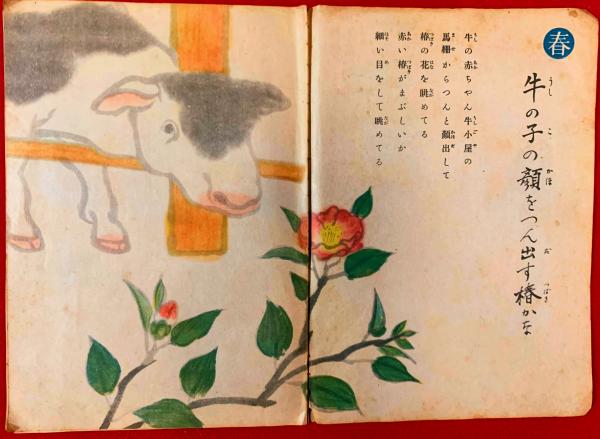 春
牛の子の顔をつん出す椿かな
牛の赤ちやん牛小屋の
馬柵からつんと顔出して
椿の花を眺めてる
赤い椿がまぶしいか
細い目をして眺めてる